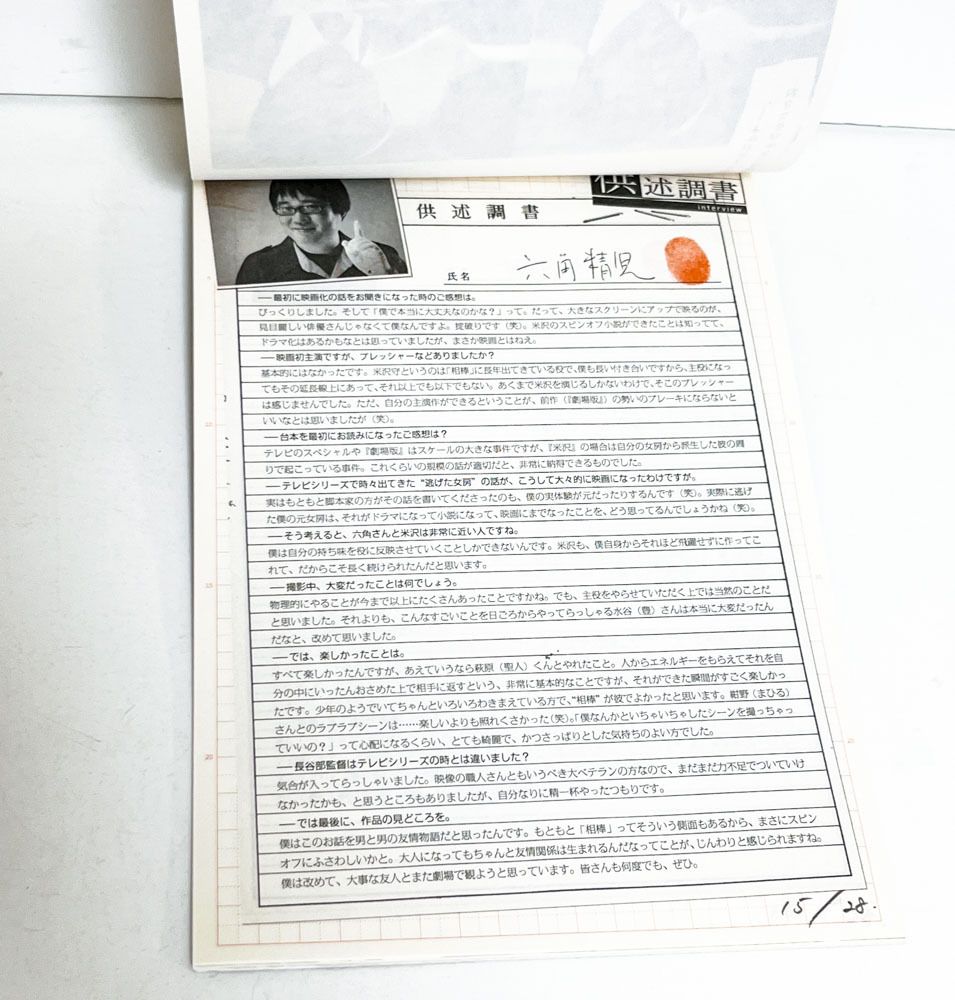 供述調書
interview
供述調書
氏名 六角精児
──最初に映画化の話をお聞きになった時のご感想は。
びっくりしました。そして「僕で本当に大丈夫なのかな？」って。だって、大きなスクリーンにアップで映るのが、
見目麗しい俳優さんじゃなくて僕なんですよ。掟破りです（笑）。米沢のスピンオフ小説ができたことは知ってて、
ドラマ化はあるかもなとは思っていましたが、まさか映画とはねえ。
──映画初主演ですが、プレッシャーなどありましたか？
基本的にはなかったです。米沢守というのは「相棒」に長年出てきている役で、僕も長い付き合いですから、主役になっ
てもその延長線上にあって、それ以上でも以下でもない。あくまで米沢を演じるしかないわけで、そこのプレッシャー
は感じませんでした。ただ、自分の主演作ができるということが、前作（『劇場版』）の勢いのブレーキにならないと
いいなとは思いましたが（笑）。
──台本を最初にお読みになったご感想は？
テレビのスペシャルや『劇場版』はスケールの大きな事件ですが、『米沢』の場合は自分の女房から派生した彼の周
りで起こっている事件。これくらいの規模の話が適切だと、非常に納得できるものでした。
──テレビシリーズで時々出てきた“逃げた女房”の話が、こうして大々的に映画になったわけですが。
実はもともと脚本家の方がその話を書いてくださったのも、僕の実体験が元だったりするんです（笑）。実際に逃げ
た僕の元女房は、それがドラマになって小説になって、映画にまでなったことを、どう思ってるんでしょうかね（笑）。
──そう考えると、六角さんと米沢は非常に近い人ですね。
僕は自分の持ち味を役に反映させていくことしかできないんです。米沢も、僕自身からそれほど飛躍せずに作ってこ
れて、だからこそ長く続けられたんだと思います。
──撮影中、大変だったことは何でしょう。
物理的にやることが今まで以上にたくさんあったことですかね。でも、主役をやらせていただく上では当然のことだ
と思いました。それよりも、こんなすごいことを日ごろからやってらっしゃる水谷（豊）さんは本当に大変だったん
だなと、改めて思いました。
──では、楽しかったことは。
すべて楽しかったんですが、あえていうなら萩原（聖人）くんとやれたこと。人からエネルギーをもらえてそれを自
分の中にいったんおさめた上で相手に返すという、非常に基本的なことですが、それができた瞬間がすごく楽しかっ
たです。少年のようでいてちゃんといろいろわきまえている方で、“相棒”が彼でよかったと思います。紺野（まひる）
さんとのラブラブシーンは……楽しいよりも照れくさかった（笑）。「僕なんかといちゃいちゃしたシーンを撮っちゃっ
ていいの？」って心配になるくらい、とても綺麗で、かつさっぱりとした気持ちのよい方でした。
──長谷部監督はテレビシリーズの時とは違いました？
気合が入ってらっしゃいました。映像の職人さんともいうべき大ベテランの方なので、まだまだ力不足でついていけ
なかったかも、と思うところもありましたが、自分なりに精一杯やったつもりです。
──では最後に、作品の見どころを。
僕はこのお話を男と男の友情物語だと思ったんです。もともと「相棒」ってそういう側面もあるから、まさにスピン
オフにふさわしいかと。大人になってもちゃんと友情関係は生まれるんだなってことが、じんわりと感じられますね。
僕は改めて、大事な友人とまた劇場で観ようと思っています。皆さんも何度でも、ぜひ。
15/28.